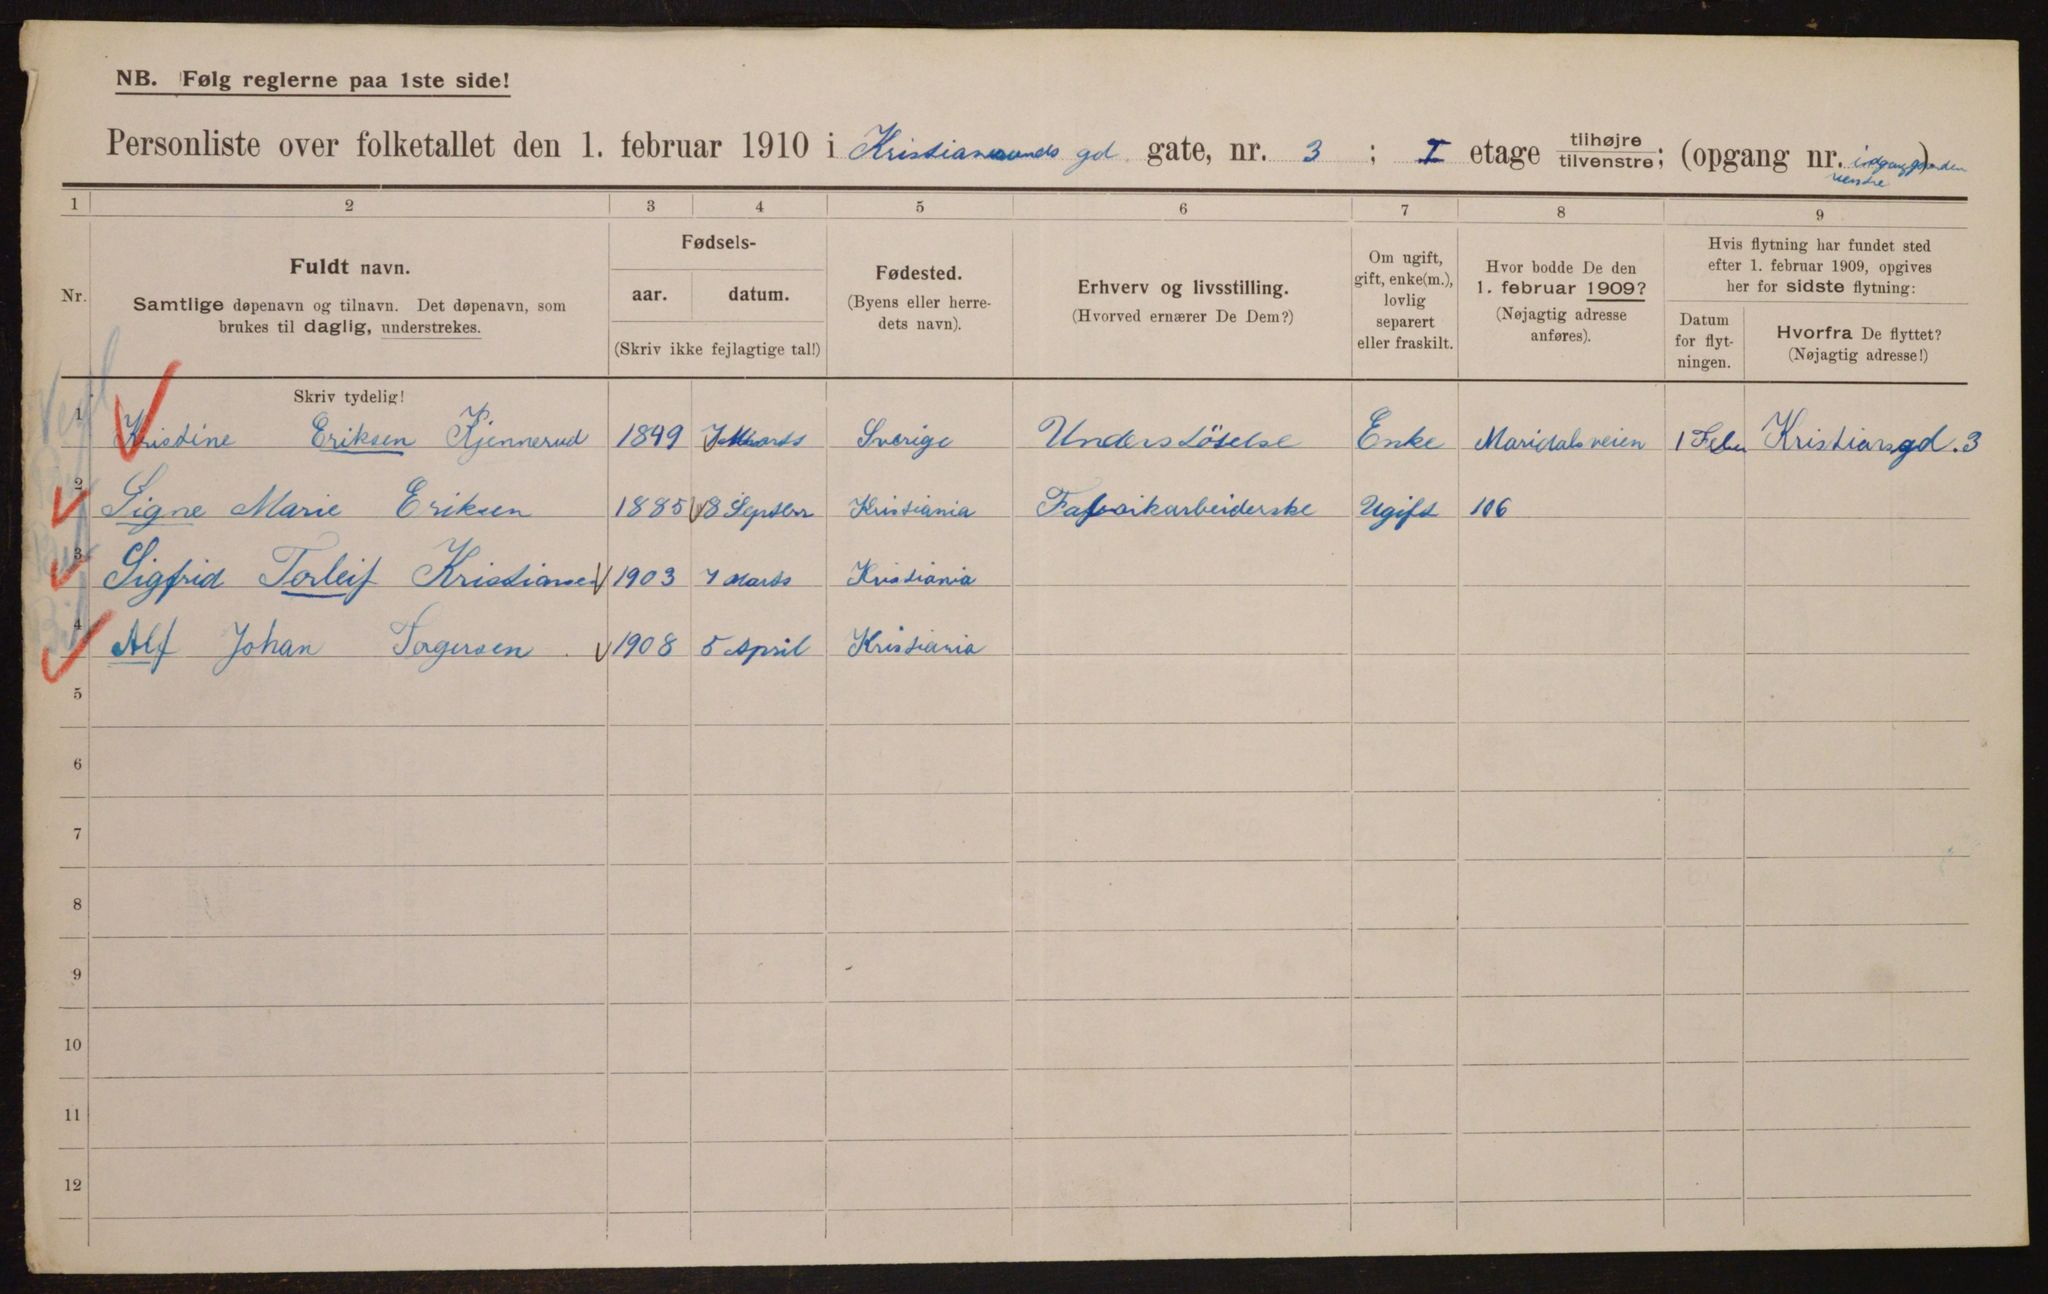 NB. Følg reglerne paa 1ste side!
Personliste over folketallet den 1. februar 1910 i Kristiansunds gd. gate, nr. 3; I etage tilhøjre tilvenstre; (opgang nr. )
venstre
1 2 3 4 5 6 7 8 9
Nr.
Fuldt navn.
Samtlige døpenavn og tilnavn. Det døpenavn, som
brukes til daglig, understrekes.
Fødsels-
aar. datum.
(Skriv ikke fejlagtige tal!)
Fødested.
(Byens eller herre-
dets navn).
Erhverv og livsstilling.
(Hvorved ernærer De Dem?)
Om ugift,
gift, enke(m.),
lovlig
separert
eller fraskilt.
Hvor bodde De den
1. februar 1909?
(Nøjagtig adresse
anføres).
Hvis flytning har fundet sted
efter 1. februar 1909, opgives
her for sidste flytning:
Datum
for flyt-
ningen.
Hvorfra De flyttet?
(Nøjagtig adresse!)
Skriv tydelig!
1 Kristine Eriksen Kjennerud 1849 7 Marts Sverige Understötelse Enke Maridalsveien 1 Febr Kristiansgd. 3
2 Signe Marie Eriksen 1885 8 Septbr Kristiania Fabrikarbeiderske Ugift 106
3 Sigfrid Torleif Kristiansen 1903 7 Marts Kristiania
4 Alf Johan Torgersen 1908 5 April Kristiania
5
6
7
8
9
10
11
12